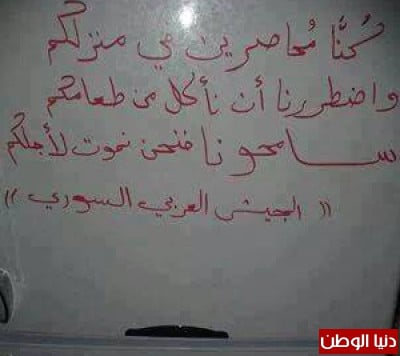 كُنَّا مُحاصرين في منزلكم
واضطررنا أن نأكل من طعامكم
سامحونا فنحن نموت لأجلكم
(( الجيش العربي السوري ))
دنيا الوطن